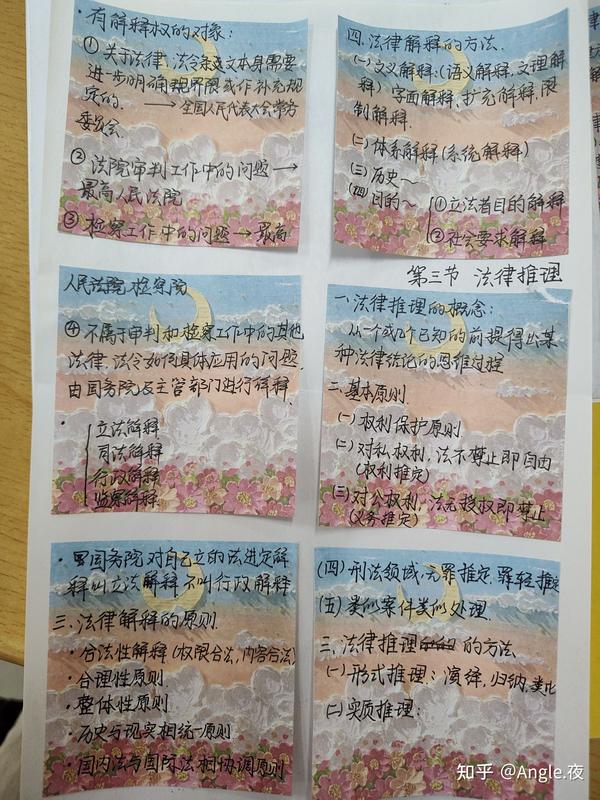 ·有解释权的对象:
①关于法律、法令条文本身需要
进一步明确界限或作补充规
定的. → 全国人民代表大会常务
委员会.
② 法院审判工作中的问题→
最高人民法院
③ 检察工作中的问题→最高
人民法院检察院
④ 不属于审判和检察工作中的其他
法律、法令如何具体应用的问题,
由国务院及主管部门进行解释.
· 立法解释
司法解释
行政解释
监察解释
·国务院对自己立的法进定解
释叫立法解释不叫行政解释
三.法律解释的原则.
·合法性解释(权限合法,内容合法)
·合理性原则
·整体性原则
·历史与现实相统一原则
·国内法与国际法相协调原则
四.法律解释的方法.
(一)文义解释:(语义解释,文理解
释) 字面解释,扩充解释,限
制解释.
(二)体系解释(系统解释)
(三)历史~
(四)目的~ ①立法者目的解释
②社会要求解释
第三节 法律推理
一.法律推理的概念:
从一个或几个已知的前提得出某
种法律结论的思维过程
二.基本原则.
(一)权利保护原则
(二)对私权利,法不禁止即自由
(权利推定)
(三)对公权利,法无授权即禁止
(义务推定)
(四)刑法领域,无罪推定,罪轻推定
(五)类似案件类似处理.
三.法律推理的方法.
(一)形式推理:演绎,归纳,类比
(二)实质推理:
知乎 @Angle.夜